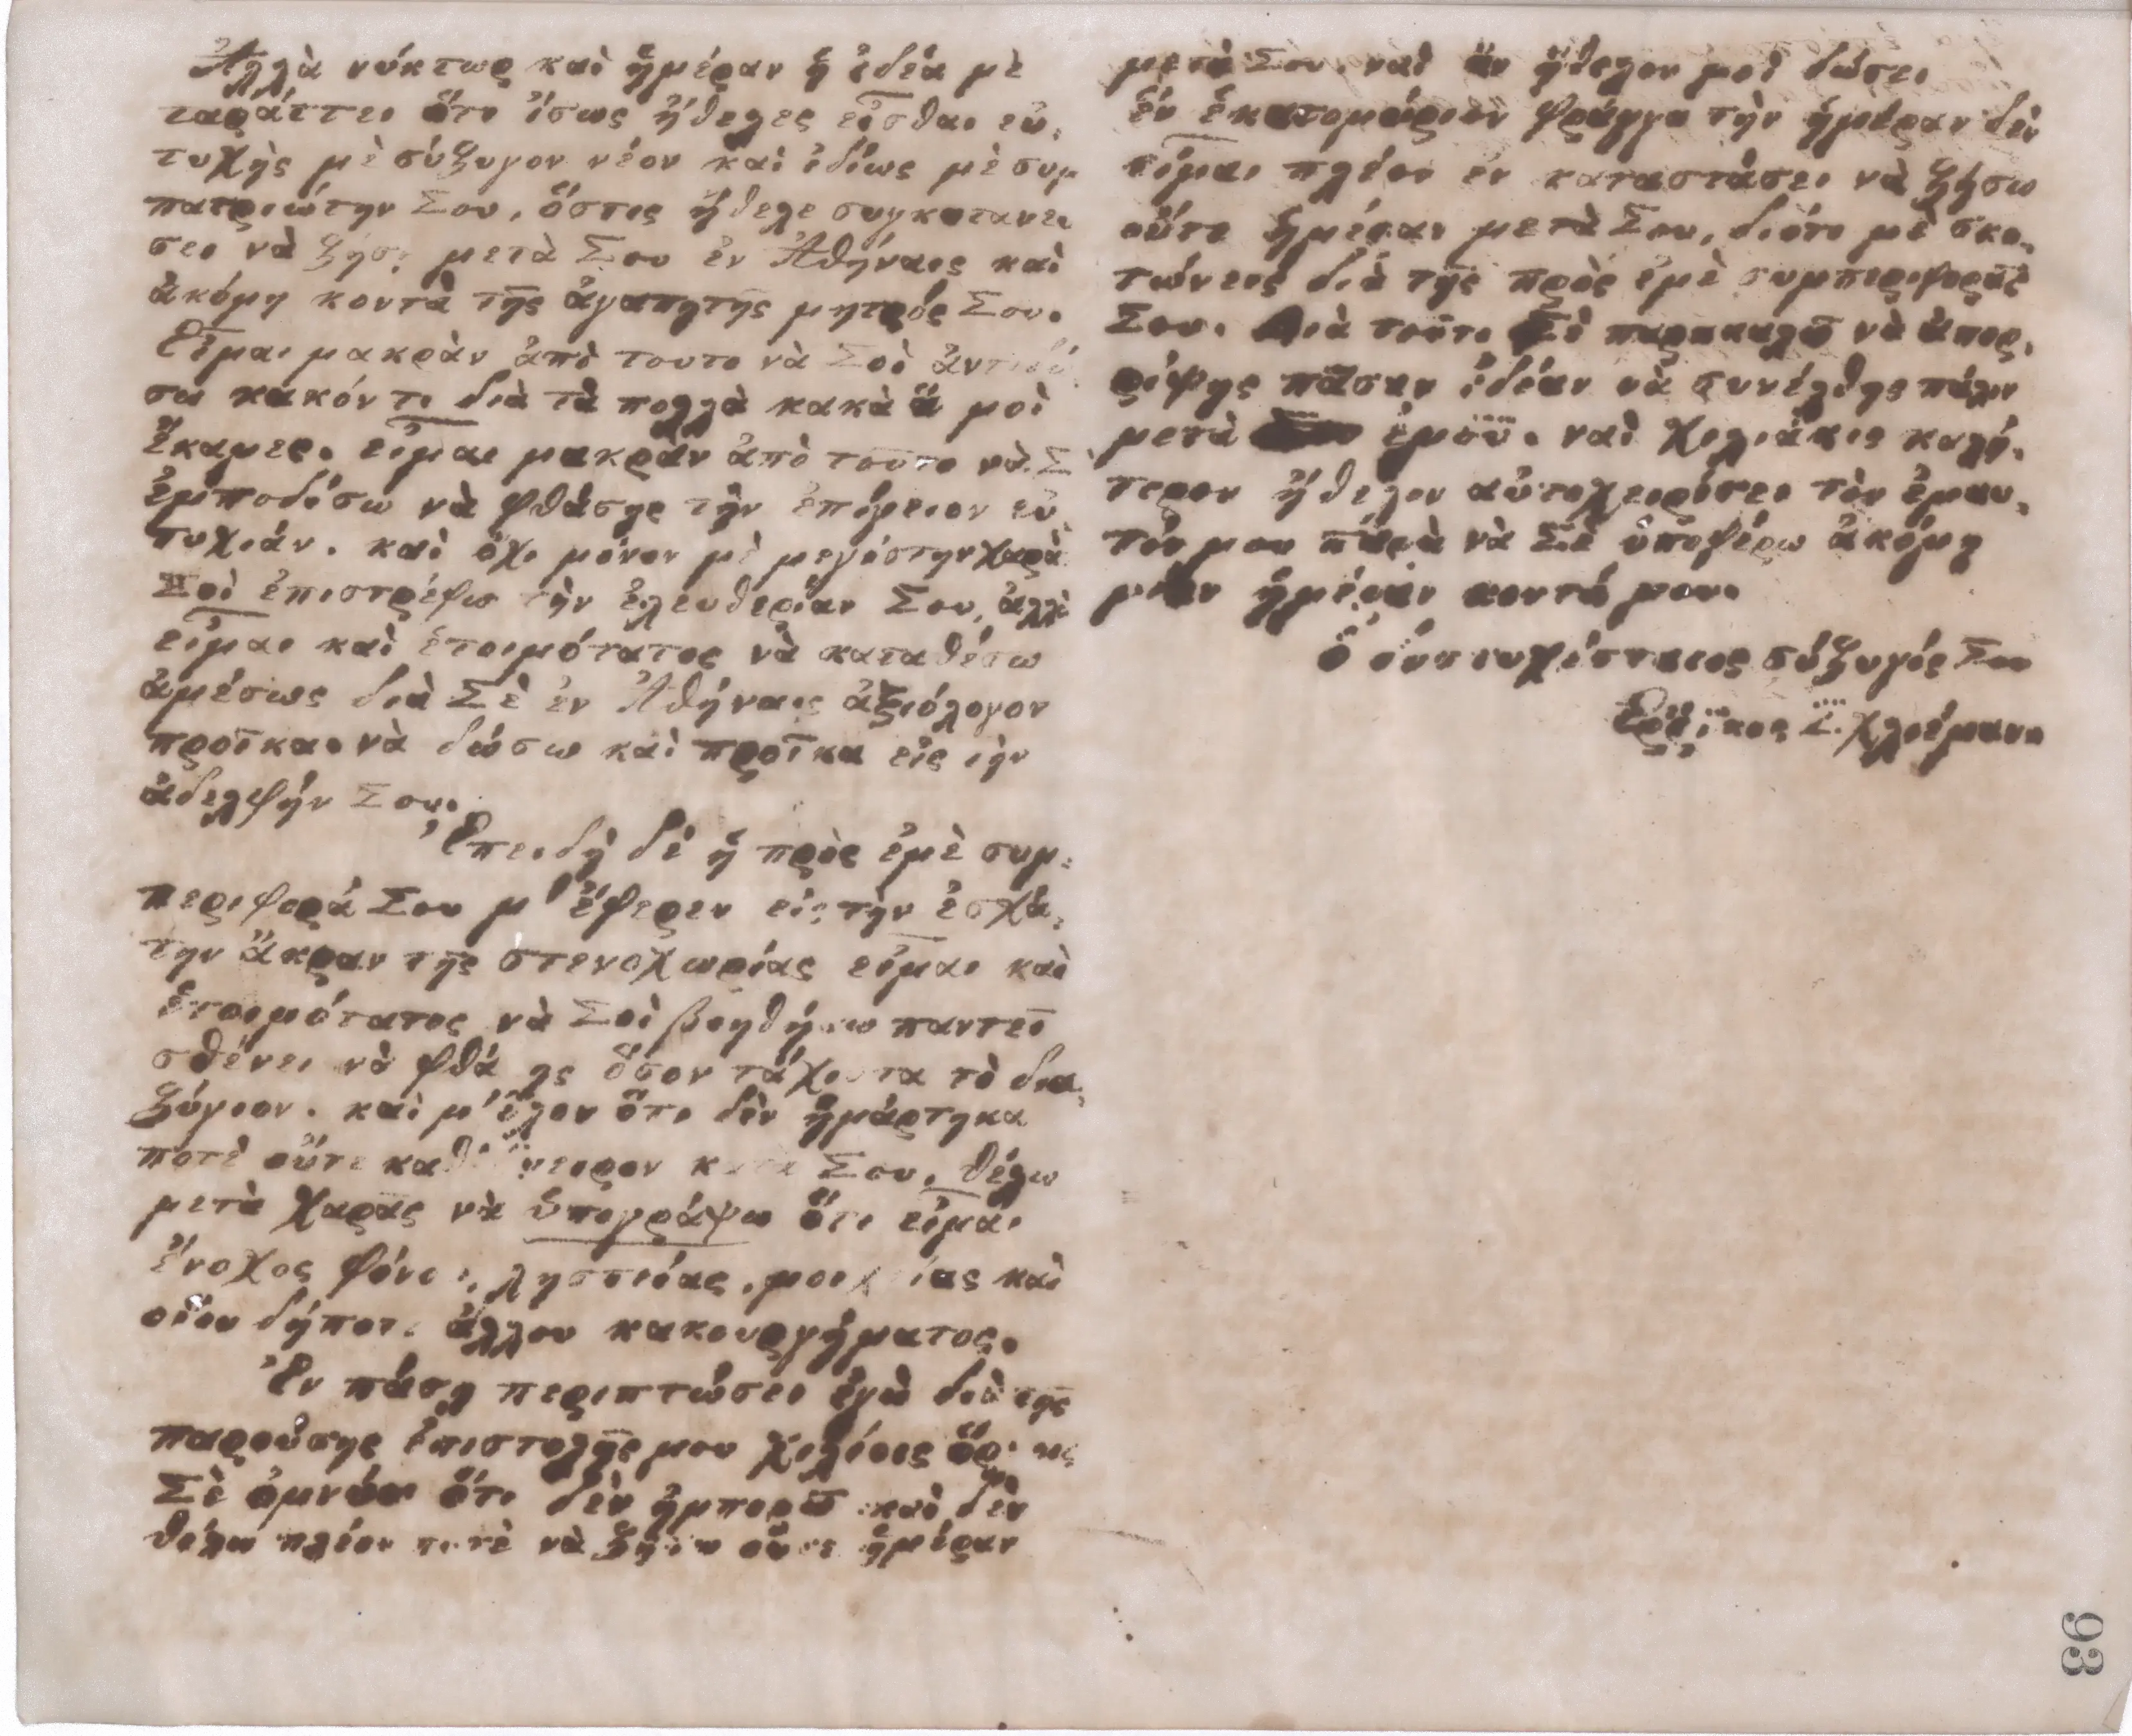 Ἀλλὰ νύκτωρ καὶ ἡμέραν ἡ ἰδέα μὲ
ταράττει ὅτι ἴσως ἤθελες εἶσθαι εὐ,
τυχὴς μὲ σύζυγον νέον καὶ ἰδίως μὲ συμ
πατριώτην Σου, ὅστις ἤθελε συγκατανεύ
σει νὰ ζήσῃ μετὰ Σου ἐν Ἀθήναις καὶ
ἀκόμη κοντὰ τῆς ἀγαπητῆς μητρός Σου.
Εἶμαι μακρὰν ἀπὸ τουτο νὰ Σοὶ ἀντιδώ
σω κακόν τι διὰ τὰ πολλὰ κακὰ ἃ μοὶ
ἔκαμες. εἶμαι μακρὰν ἀπὸ τοῦτο νὰ Σ
ἐμποδίσω νὰ φθάσῃς τὴν ἐπίγειον εὐ
τυχιάν. καὶ ὄχι μόνον μὲ μεγίστην χαρὰ
Σοὶ ἐπιστρέφω τὴν ἐλευθερίαν Σου, ἀλλὰ
εἶμαι καὶ ἑτοιμότατος νὰ καταθέσω
ἀμέσως διὰ Σὲ ἐν Ἀθήναις ἀξιόλογον
προῖκα. νὰ δώσω καὶ προῖκα εἰς τὴν
ἀδελφήν Σου.
Ἐπειδὴ δὲ ἡ πρὸς ἐμὲ συμ,
περιφορά Σου μ' ἔφερεν εἰς τὴν ἐσχά,
την ἄκραν τῆς στενοχωρίας εἶμαι καὶ
ἑτοιμότατος νὰ Σοὶ βοηθήσω παντεῖ
σθένει νὰ φθάσῃς ὅσον τάχιστα τὸ δια,
ζύγιον. καὶ μ' ὅλον ὅτι δὲν ἡμάρτηκα
ποτὲ οὔτε καθ' ὄνειρον κατὰ Σου, θέλω
μετὰ χαρᾶς νὰ ὑπογράψω ὅτι εἶμαι
ἔνοχος φόνου, λῃστείας, μοιχείας καὶ
οἱουδήποτε ἄλλου κακουργήματος.
Ἐν πάσῃ περιπτώσει ἐγὼ διὰ τῆς
παρούσης ἐπιστολῆς μου χιλίοις ὅρκοις
Σὲ ὀμνύω ὅτι δὲν ἠμπορῶ καὶ δὲν
θέλω πλέον ποτὲ νὰ ζήσω οὔτε ἡμέραν
μετὰ Σου. ναὶ ἂν ἤθελον μοὶ δώσει
ἓν ἑκατομμύριον φράγγα τὴν ἡμέραν δὲν
εἶμαι πλέον ἐν καταστάσει νὰ ζήσω
οὔτε ἡμέραν μετὰ Σου, διότι μὲ σκο,
τώνεις διὰ τῆς πρὸς ἐμὲ συμπεριφορᾶς
Σου. Διὰ τοῦτο Σὲ παρακαλῶ νὰ ἀπορ,
ρίψῃς πᾶσαν ἰδέαν νὰ συνέλθῃς πάλιν
μετὰ ἐμοῦ. ναὶ χιλιάκις καλή,
τερον ἤθελον αὐτοχειρίσει τὸν ἐμαυ,
τόν μου παρὰ νὰ Σὲ ὑποφέρω ἀκόμη
μίαν ἡμέραν κοντά μου.
ὁ δυστυχέστατος σύζυγός Σου
Ἐρρῖκος Σ. Χλιέμανν
93